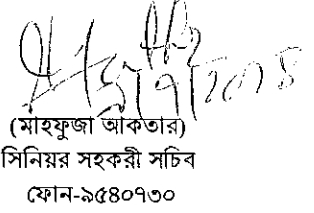 (মাহফুজা আকতার)
সিনিয়র সহকরী সচিব
ফোন-৯৫৪০৭৩০